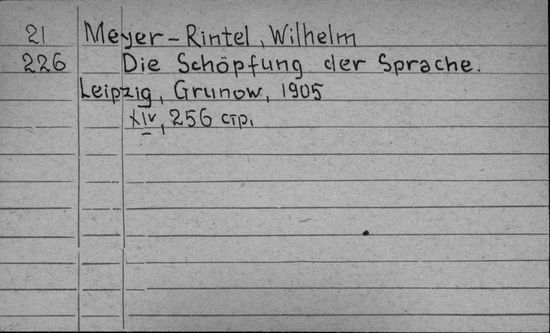 21 Meyer-Rintel, Wilhelm
226 Die Schöpfung der Sprache.
Leipzig, Grunow, 1905
XIV, 256 стр.